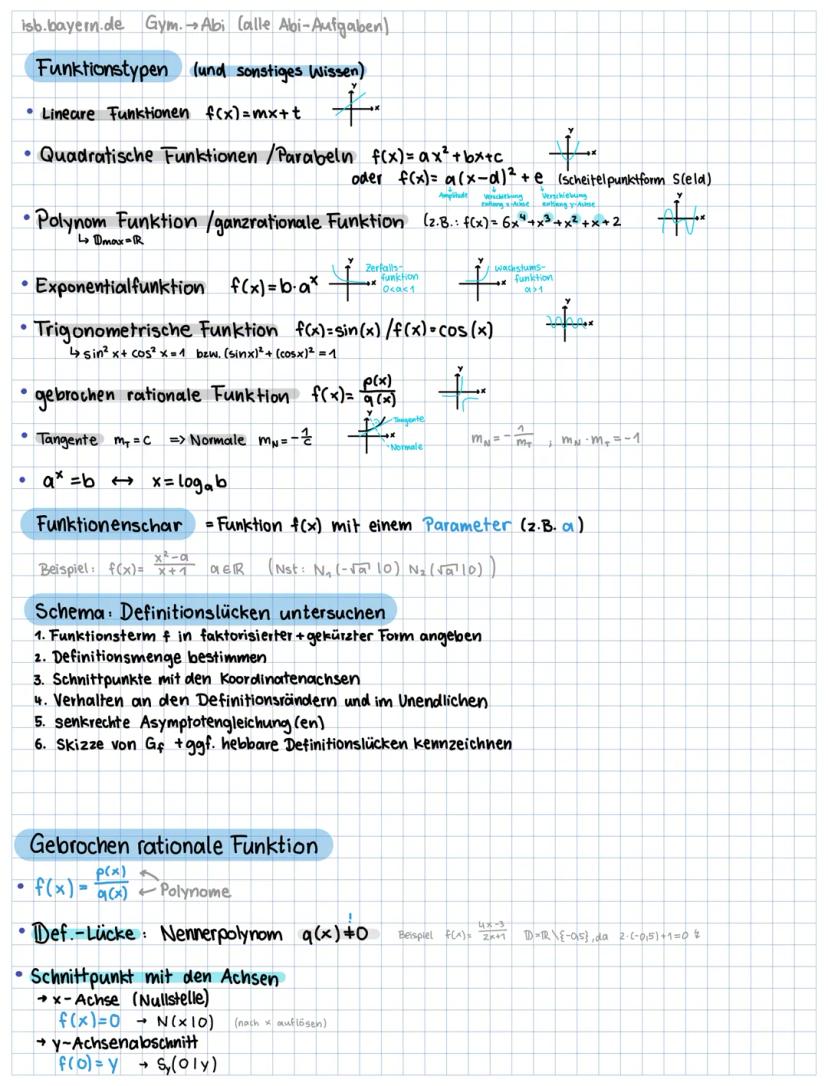 isb.bayern.de Gym.→Abi (alle Abi-Aufgaben)
Funktionstypen (und sonstiges Wissen)
• Lineare Funktionen f(x)=mx+t
• Quadratische Funktionen /Parabeln f(x)=ax²+bx+c
oder f(x)=a(x-d)²+e (Scheitelpunktform S(e|d)
Amplitude Verschiebung entlang x-Achse Verschiebung entlang y-Achse
• Polynom Funktion /ganzrationale Funktion (z.B.: f(x)=6x⁴+x³+x²+x+2
↳ Dmax=ℝ
• Exponentialfunktion f(x)=b·aˣ Zerfalls-funktion 0<a<1 Wachstums-funktion a>1
• Trigonometrische Funktion f(x)=sin(x) /f(x)=cos(x)
↳ sin²x+cos²x=1 bzw. (sinx)²+(cosx)²=1
• gebrochen rationale Funktion f(x)=p(x)/q(x)
• Tangente m_T=c => Normale m_N=-1/c Tangente Normale m_N=-1/m_T ; m_N·m_T=-1
• aˣ=b ↔ x=logₐb
Funktionenschar =Funktion f(x) mit einem Parameter (z.B. a)
Beispiel: f(x)=x²-a/x+1 a∈ℝ (Nst: N₁(-√a|0) N₂(√a|0))
Schema: Definitionslücken untersuchen
1. Funktionsterm f in faktorisierter+gekürzter Form angeben
2. Definitionsmenge bestimmen
3. Schnittpunkte mit den Koordinatenachsen
4. Verhalten an den Definitionsrändern und im Unendlichen
5. senkrechte Asymptotengleichung(en)
6. Skizze von G_f +ggf. hebbare Definitionslücken kennzeichnen
Gebrochen rationale Funktion
• f(x)=p(x)/q(x) ← Polynome
• Def.-Lücke: Nennerpolynom q(x)≠0 ! Beispiel f(x)=4x-3/2x+1 D=ℝ\{-0,5}, da 2·(-0,5)+1=0 ↯
• Schnittpunkt mit den Achsen
→ x-Achse (Nullstelle)
f(x)=0 → N(x|0) (nach x auflösen)
→ y-Achsenabschnitt
f(0)=y → S_y(0|y)